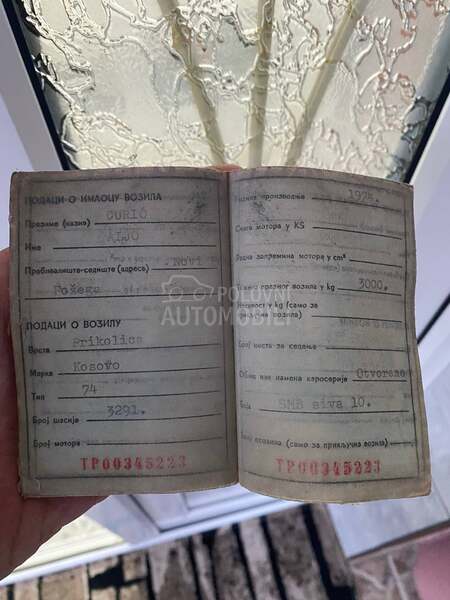 ПОДАЦИ О ИМАОЦУ ВОЗИЛА
Презиме (назив) CURIĆ
Име
Пребивалиште-седиште (адреса) Novi
Požega
ПОДАЦИ О ВОЗИЛУ
Врста Prikolica
Марка Kosovo
Тип 74
Број шасије 3291.
Број мотора
TP00345223
Година производње 1974.
Снага мотора у KS
Радна запремина мотора у cm³
Тежина празног возила у kg 3000.
Носивост у kg (само за
теретна возила)
Број места за седење
Облик или намена каросерије Otvorena
Боја SMB siva 10.
(само за прикључна возила)
TP00345223
POLOVNI
AUTOMOBILI